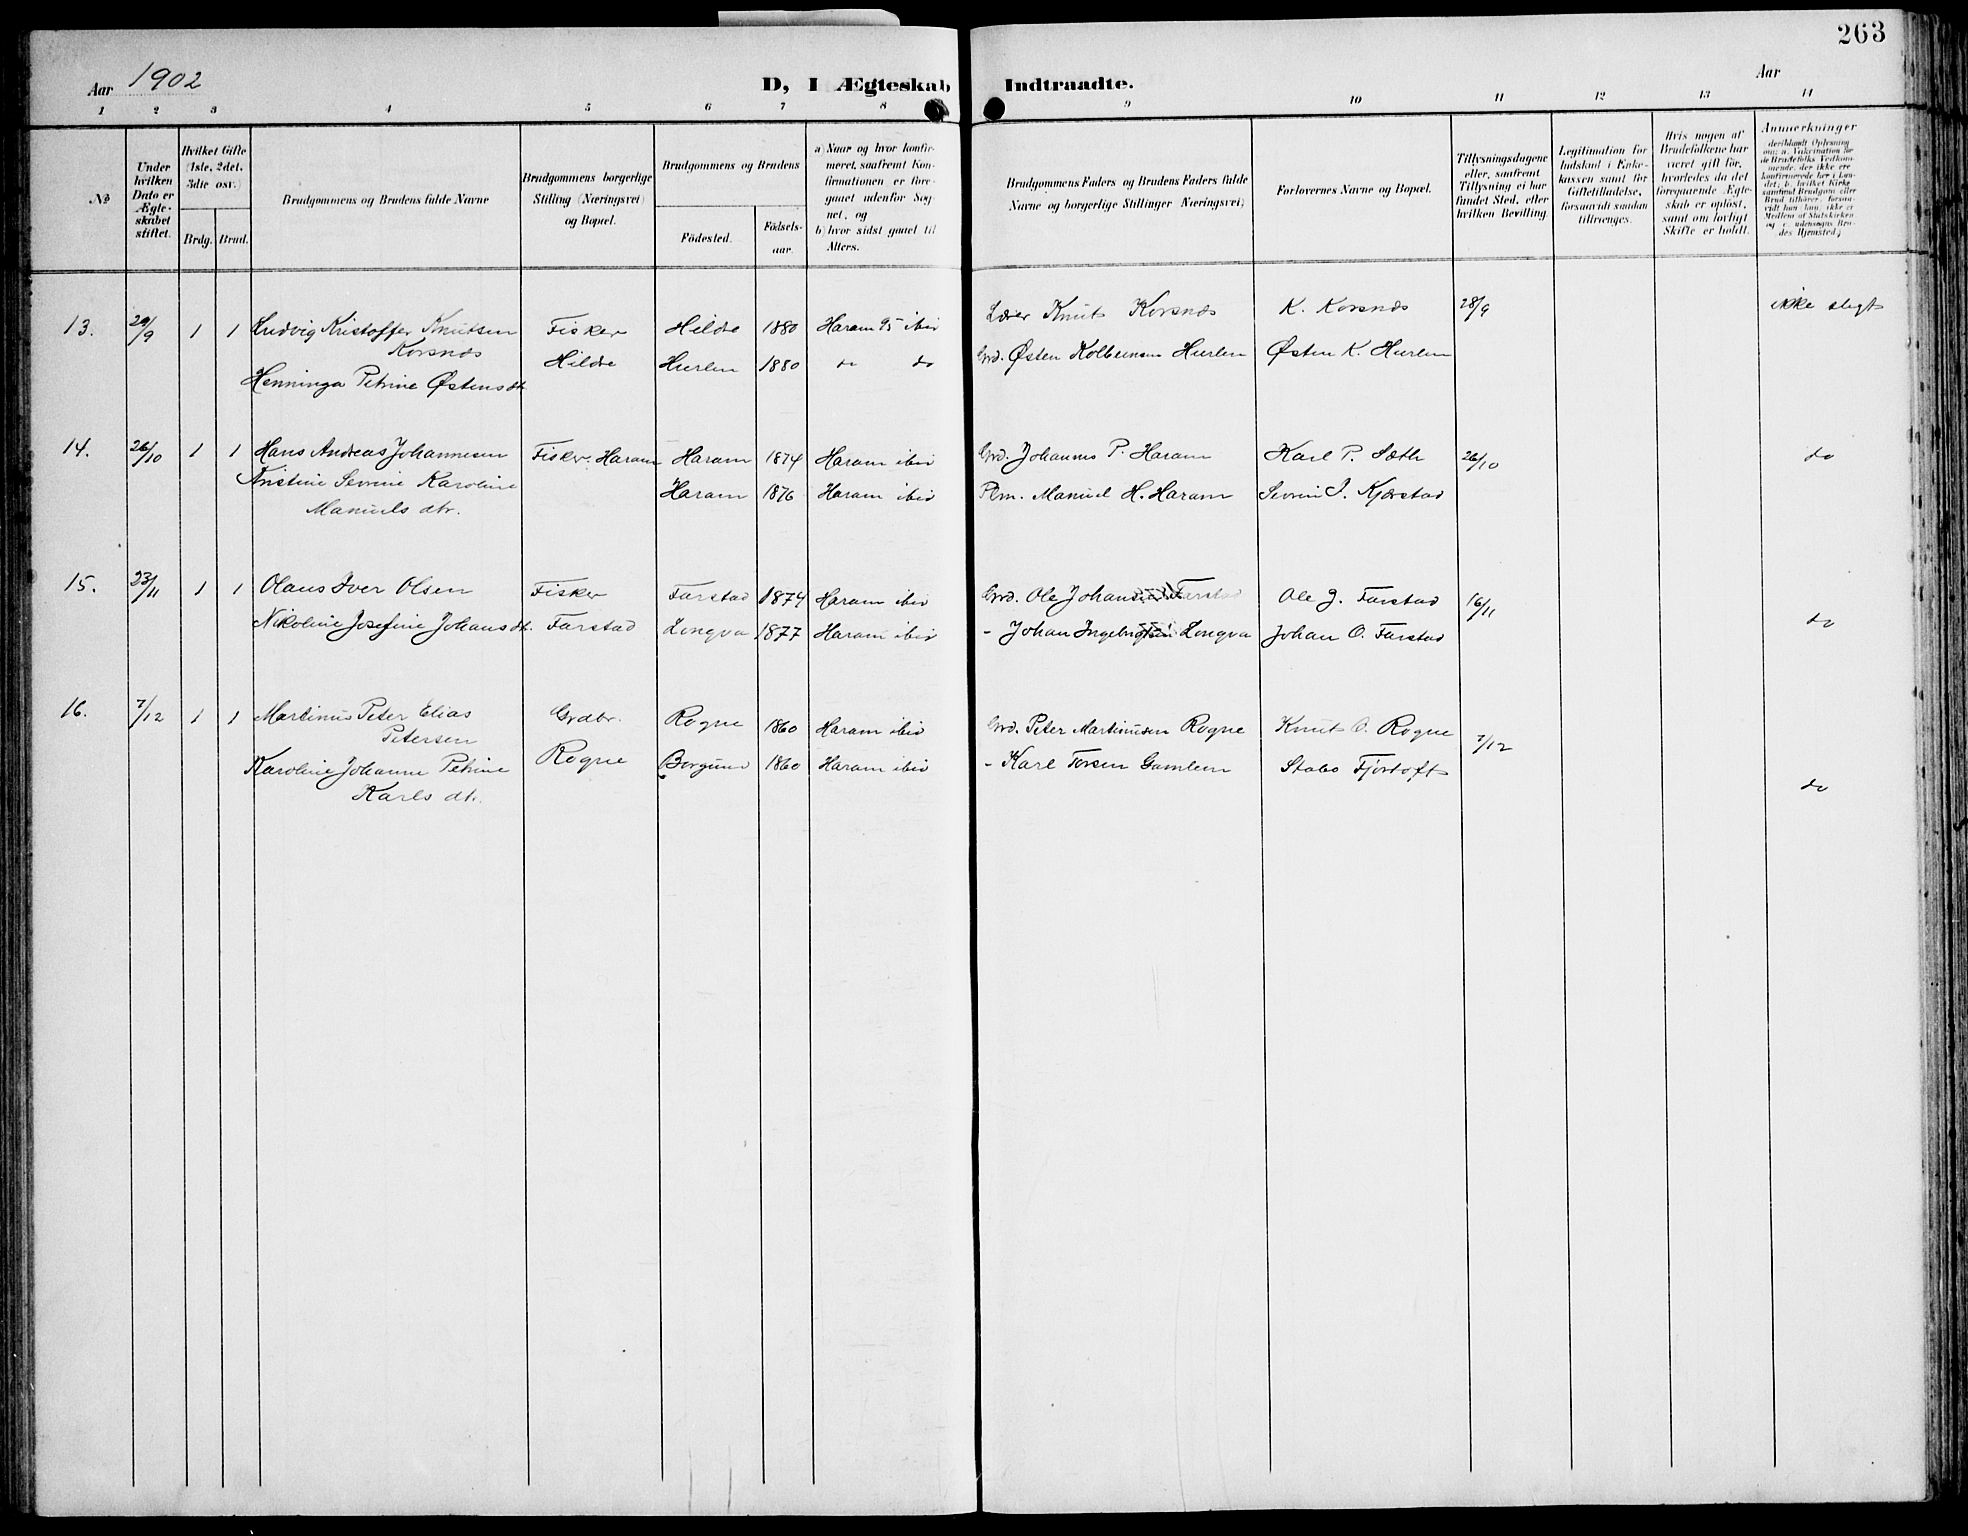 263
Aar 1902
D, I Ægteskab Indtraadte.
Aar
1 2 3 4 5 6 7 8 9 10 11 12 13 14
No
Under hvilken Dato er Ægteskabet stiftet.
Hvilket Gifte (1ste, 2det, 3die osv.)
Brdg. Brud.
Brudgommens og Brudens fulde Navne
Brudgommens borgerlige Stilling (Næringsvei) og Bopæl.
Brudgommens og Brudens
Födested.
Födselsaar.
a) Naar og hvor konfirmeret, saafremt Konfirmationen er foregaaet udenfor Sognet, og
b) hvor sidst gaaet til Alters.
Brudgommens Faders og Brudens Faders fulde Navne og borgerlige Stillinger Næringsvei)
Forlovernes Navne og Bopæl.
Tillysningsdagene eller, saafremt Tillysning ei har fundet Sted, efter hvilken Bevilling.
Legitimation for Indskud i Enkekassen samt for Giftetilladelse, forsaavidt saadan tiltrænges.
Hvis nogen af Brudefolkene har været gift för, hvorledes da det foregaaende Ægteskab er oplöst, samt om lovligt Skifte er holdt.
Anmerkninger
13. 29/9 1 1 Ludvig Kristoffer Knutsen Fisker Hildre 1880 Haram 95 ibid Lærer Knut Korsnæs K. Korsnæs 28/9 ikke slegt
Korsnæs
Henninga Petrine Østensdt. Hildre Hurlen 1880 do do Grd. Østen Kolbeinsen Hurlen Østen K. Hurlen
14. 26/10 1 1 Hans Andreas Johannesen Fisker. Haram Haram 1874 Haram ibid Grd. Johannes P. Haram Karl P. Sæth 26/10 do
Kristine Sevrine Karoline Haram 1876 Haram ibid Plm. Manuel H. Haram Sevrin J. Kjærstad
Manuels dtr.
15. 23/11 1 1 Olaus Iver Olsen Fisker Farstad 1874 Haram ibid Grd. Ole Johansen Farstad Ole J. Farstad 16/11
Nikoline Josefine Johansdt. Farstad Longva 1877 Haram ibid - Johan Ingebrigtsen Longva Johan O. Farstad do
16. 7/12 1 1 Martinus Peter Elias Grdbr. Rogne 1860 Haram ibid Grd. Peter Martinusen Rogne Knut O. Rogne 7/12
Petersen
Karoline Johanne Petrine Rogne Borgund 1860 Haram ibid - Karl Torsen Gamlem Fjørtoft
Karls dt. do